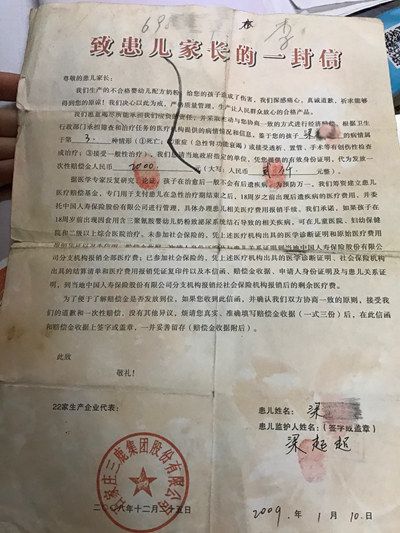 69
李
致患儿家长的一封信
尊敬的患儿家长:
我们生产的不合格婴幼儿配方奶粉,给您的孩子造成了伤害,我们深感痛心,真诚道歉,祈求能够
得到您的原谅!我们决心以此为戒,严格质量管理,生产让人民群众放心的合格产品。
行政部门承担筛查和治疗任务的医疗机构提供的病情情况和信息,鉴于您的孩子 梁 的病情属
于第 3. 种情形(①死亡;②重症(急性肾功能衰竭)或接受透析、置管、手术等有创伤性检查
或治疗;③接受一般性治疗),我们愿请当地政府指定的单位,凭您提供的有效身份证明,代为发放一
次性赔偿金人民币 2000 元(大写:人民币 贰仟 元整)。
据医学专家反复研究、论证,孩子在治愈后一般不会有后遗疾病。为预防万一,我们筹资建立患儿
医疗赔偿基金,专门用于支付患儿在急性治疗期结束之后、18周岁以前可能出现后遗的医疗费用,并委
托中国人寿保险股份有限公司进行管理,具体办理患儿相关医疗费用报销手续。我们承诺,如果孩子在
18周岁前出现因食用含三聚氰胺婴幼儿奶粉致泌尿系统结石导致的相关疾病,可在儿童医院、妇幼保健
院和二级以上综合医院治疗。未参加社会保险的,凭上述医疗机构出具的医学诊断证明和原始医疗费用
分支机构报销全部医疗费;已参加社会保险的,凭上述医疗机构出具的医学诊断证明、社会保险机构出
具的结算清单和医疗费用报销凭证复印件以及本信函、赔偿金收据、申请人身份证明及与患儿关系证
明,到当地中国人寿保险股份有限公司分支机构报销经社会保险机构报销后的剩余医疗费。
为了便于了解赔偿金是否发放到位,如果您收到此信函,并确认我们双方协商一致的原则,接受我
们的道歉和一次性赔偿,没有其他异议,烦请您真实、准确填写赔偿金收据(一式三份)后,在此信函
和赔偿金收据上签字或盖章,一并妥善留存(赔偿金收据附后)。
此致
敬礼!
22家生产企业代表:
患儿姓名: 梁
患儿监护人姓名:(签字或盖章)
梁超超
石家庄三鹿集团股份有限公司
二〇〇八年十二月二十五日
2009. 年 1 月 10. 日